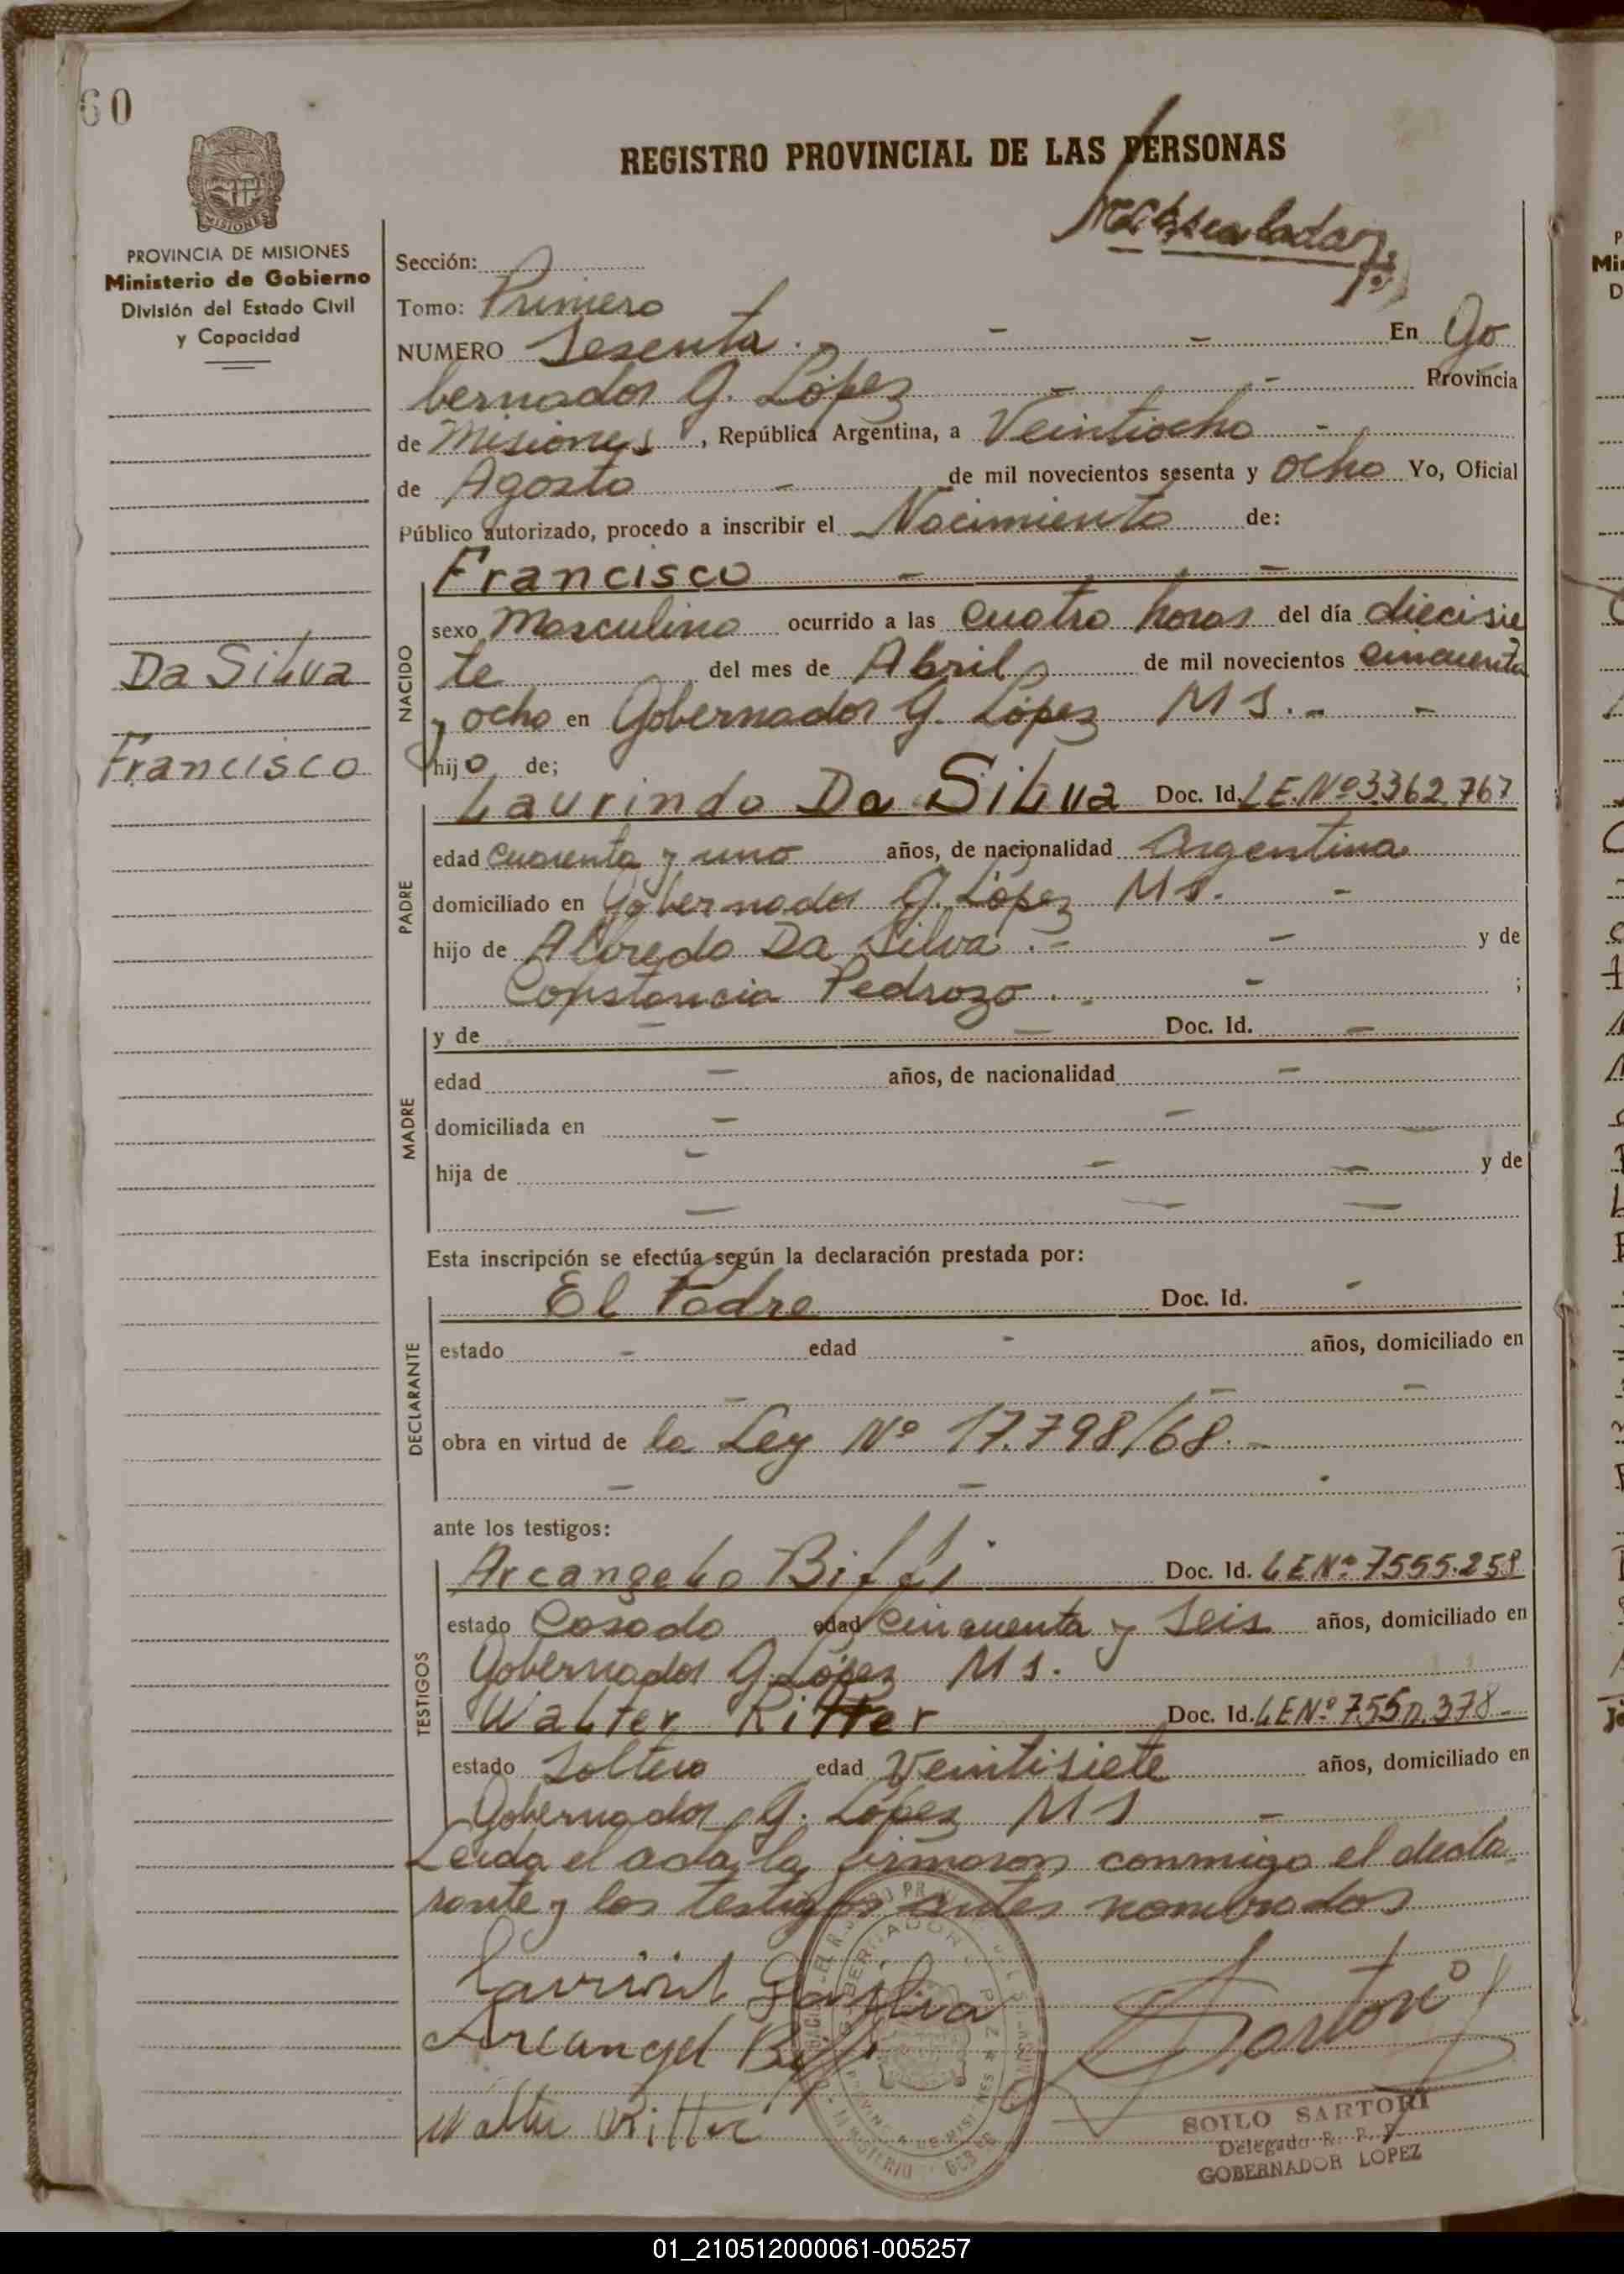 60
REGISTRO PROVINCIAL DE LAS PERSONAS
MISIONES
PROVINCIA DE MISIONES
Ministerio de Gobierno
División del Estado Civil
y Capacidad
Sección:
Tomo: Primero
NUMERO Sesenta . - - En Go
bernador G. López - - Provincia
de Misiones, República Argentina, a Veintiocho -
de Agosto - de mil novecientos sesenta y ocho Yo, Oficial
Público autorizado, procedo a inscribir el Nacimiento de:
Francisco - -
NACIDO
sexo Masculino ocurrido a las cuatro horas del día diecisie
te del mes de Abril de mil novecientos cincuenta
y ocho en Gobernador G. López MS. - -
hijo de;
Da Silva
Francisco
Laurindo Da Silva Doc. Id. LE.Nº3362767
PADRE
edad cuarenta y uno años, de nacionalidad Argentina
domiciliado en Gobernador G. López MS. -
hijo de Alfredo Da Silva . - - y de
Constancia Pedrozo . - - ;
MADRE
y de - - Doc. Id. -
edad - años, de nacionalidad -
domiciliada en - - -
hija de - - - y de
- - -
Esta inscripción se efectúa según la declaración prestada por:
DECLARANTE
El Padre Doc. Id. -
estado - edad - años, domiciliado en
- - -
obra en virtud de la Ley Nº 17.798/68. -
- - -
ante los testigos:
TESTIGOS
Arcangelo Biffi Doc. Id. LE Nº 7555.259
estado Casado edad cincuenta y seis años, domiciliado en
Gobernador G. López MS.
Walter Ritter Doc. Id. LE Nº
estado Soltero edad Veintisiete años, domiciliado en
Gobernador G. López MS -
Leida el acta, la firmaron conmigo el decla-
rante y los testigos antes nombrados
Arcangel Biffi
Sartori
Walter Ritter
SOILO SARTORI
Delegado R. P. P.
GOBERNADOR LOPEZ
01_210512000061-005257